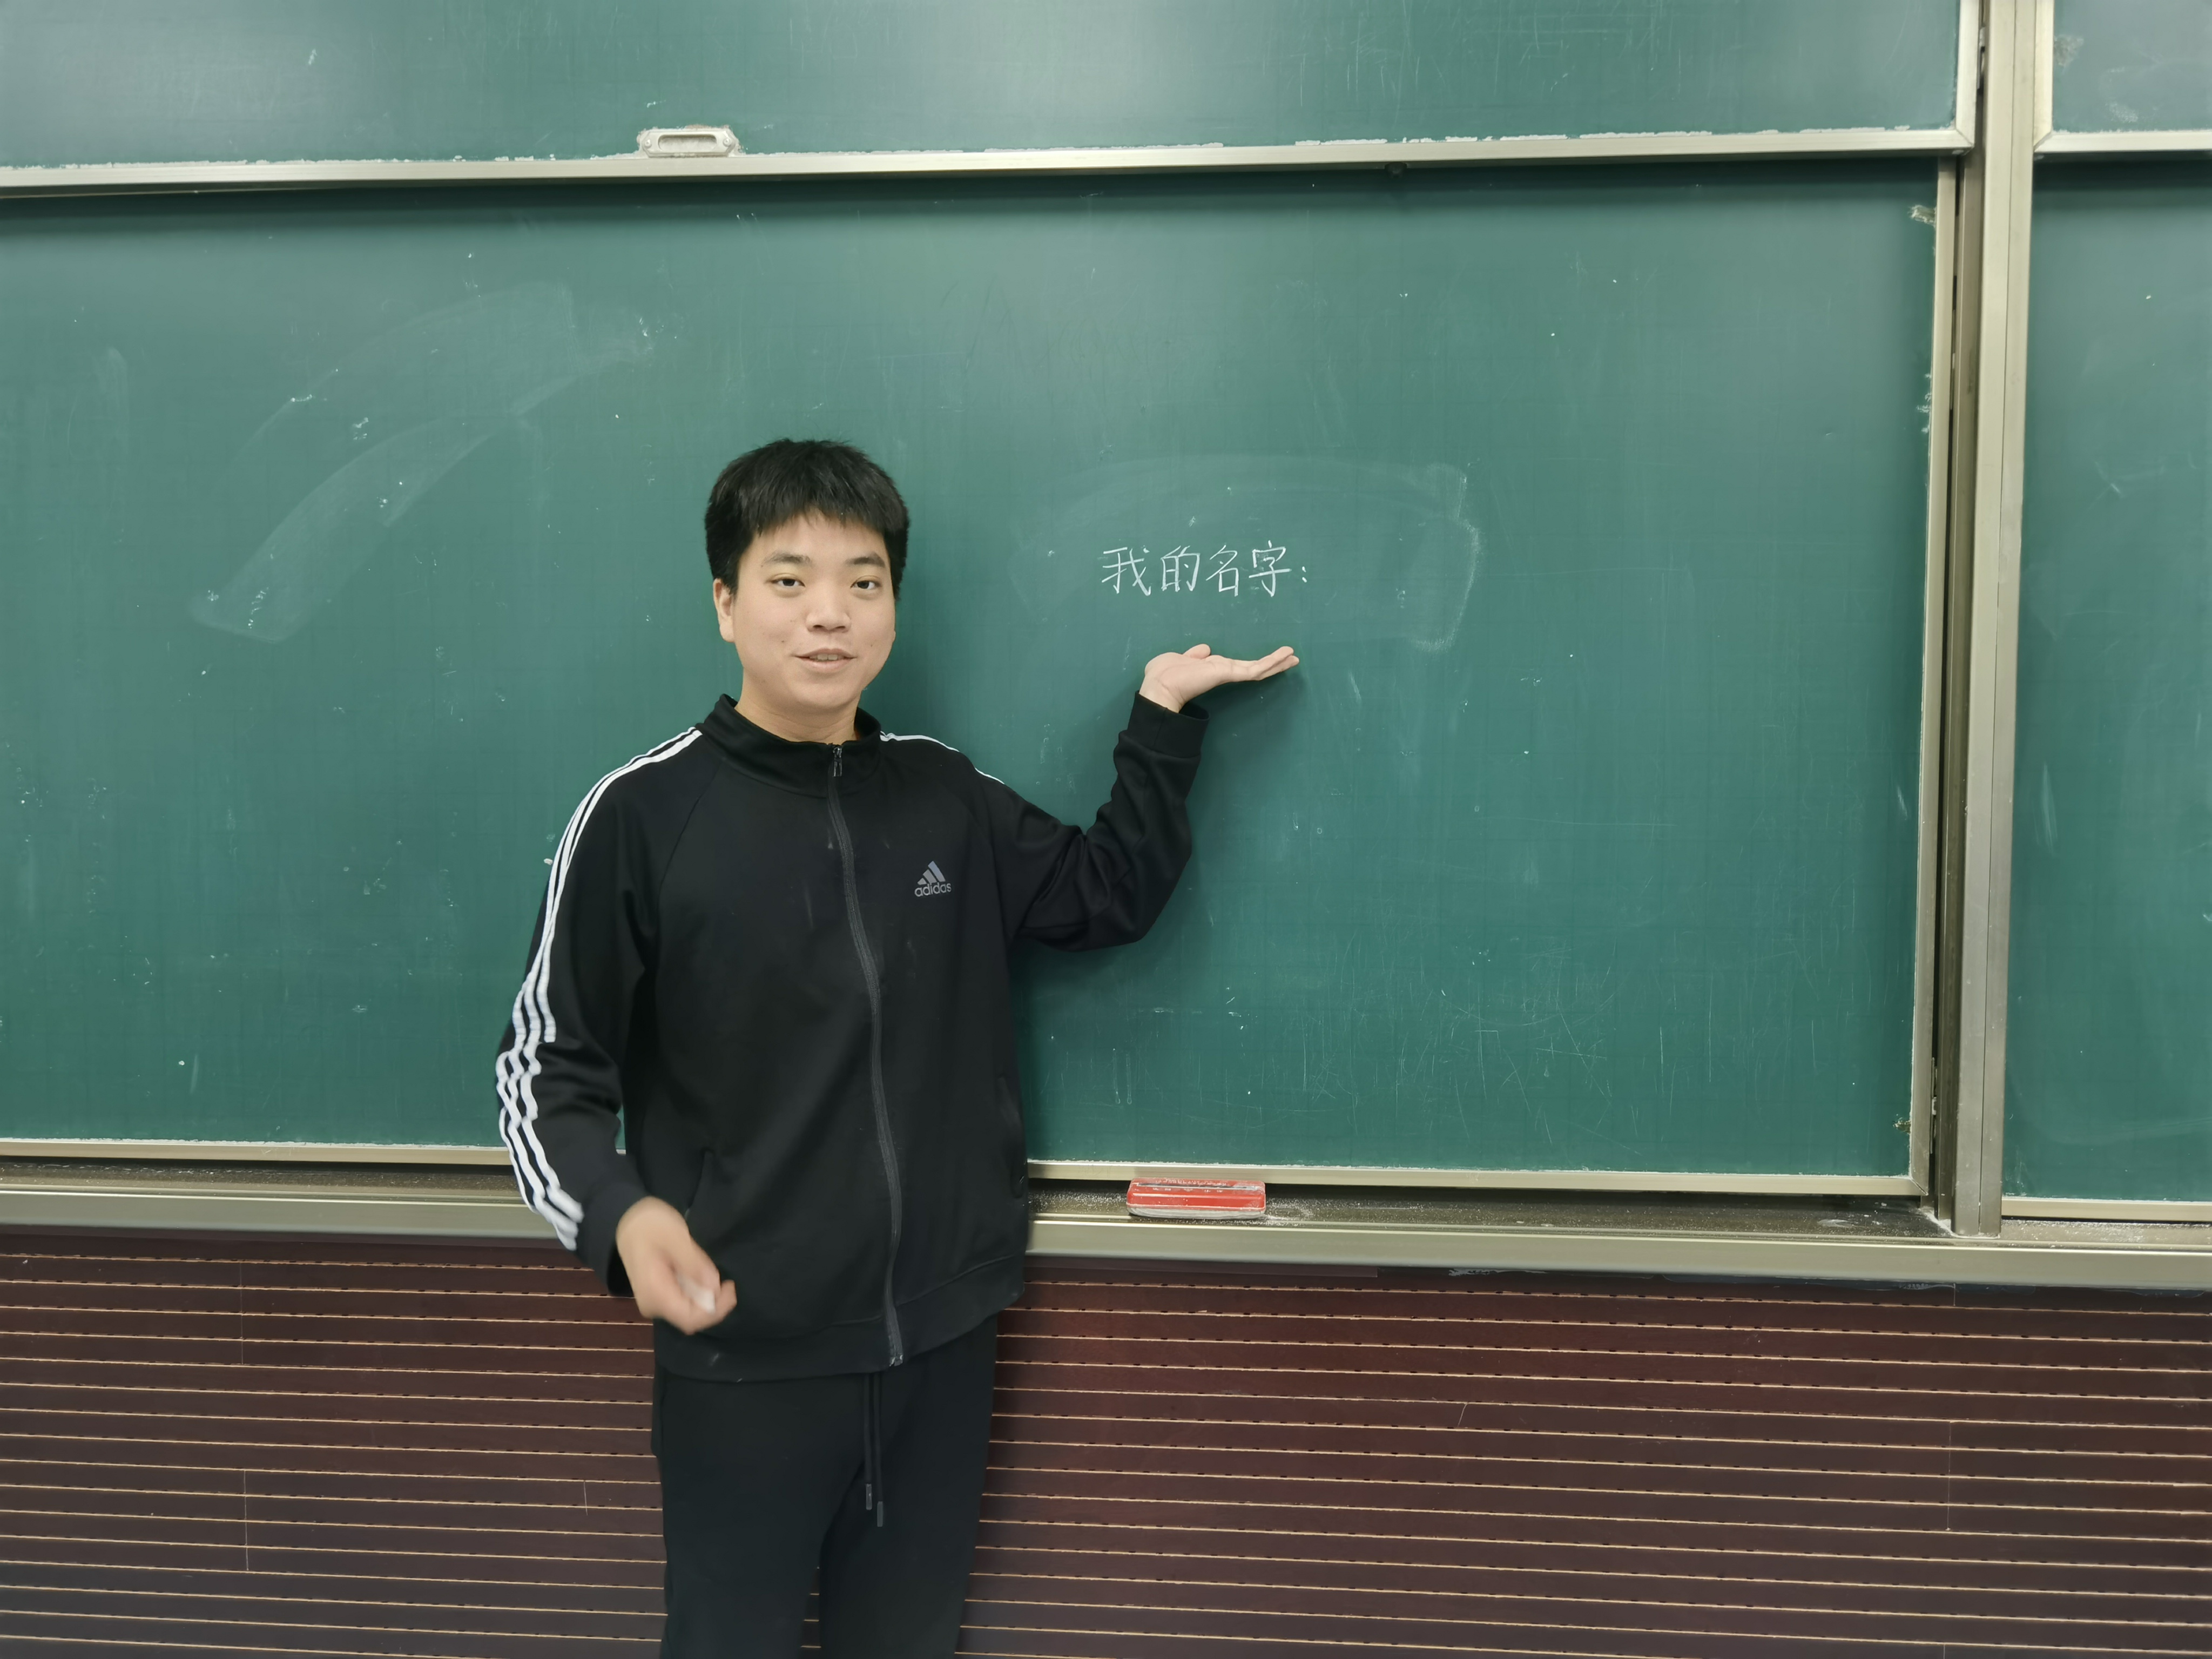 我的名字:
adidas